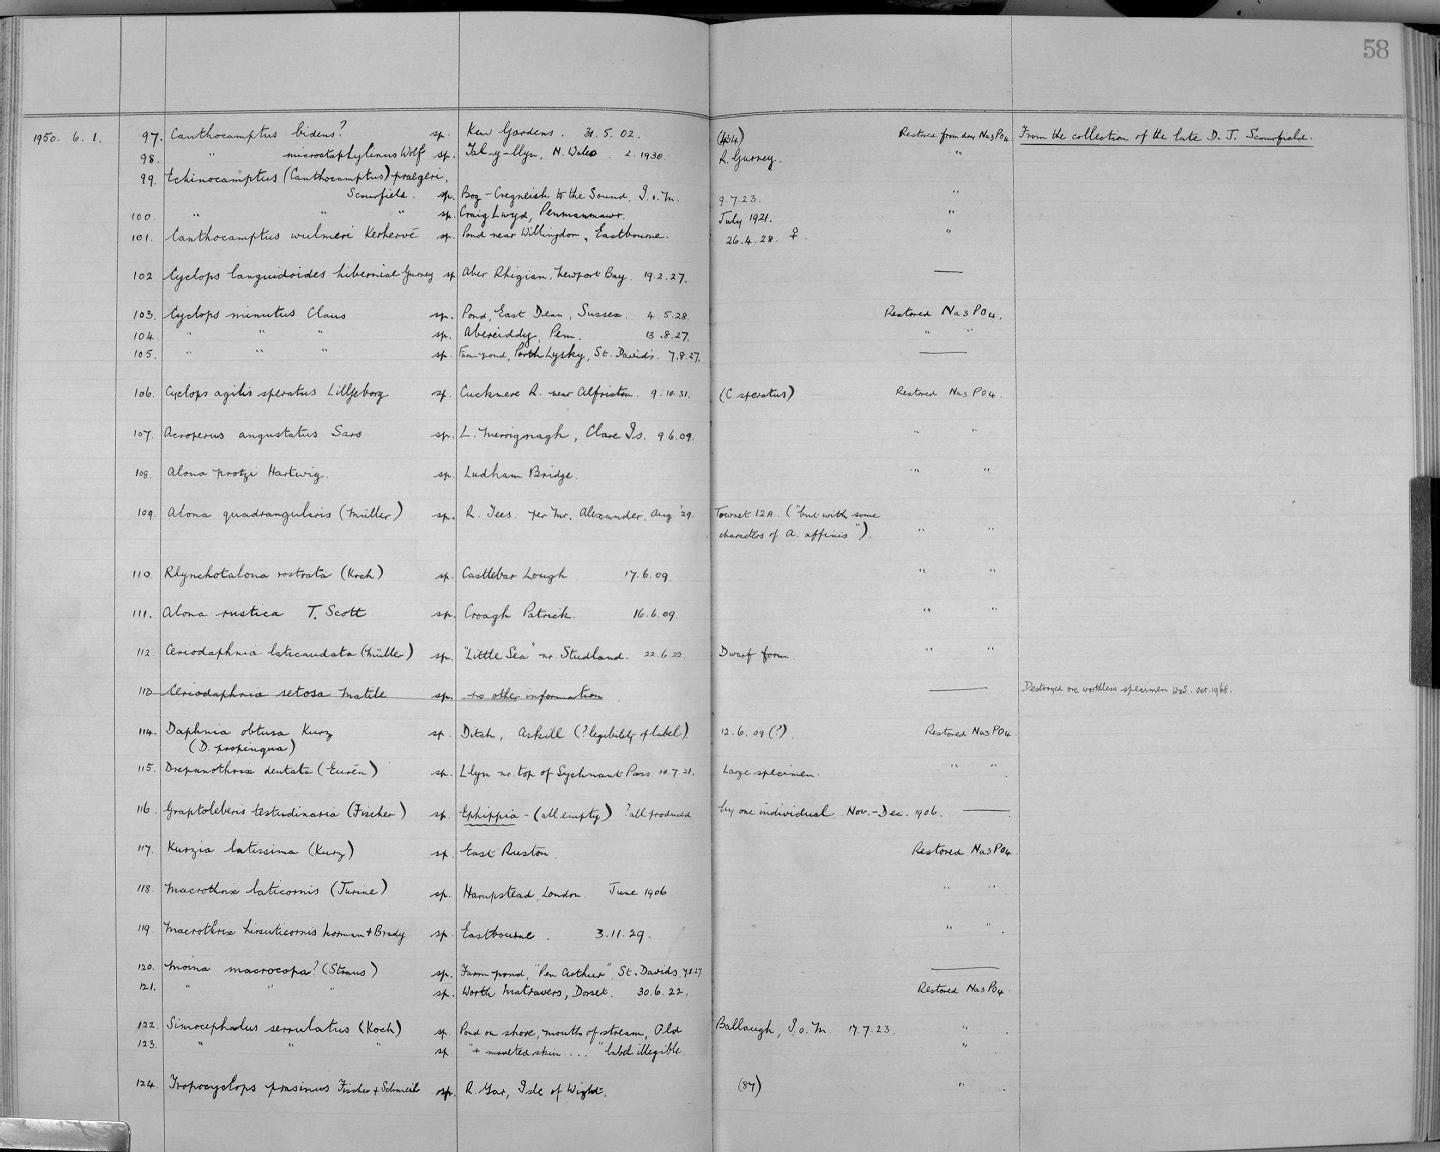 58
1950. 6. 1. 97. Canthocamptus bidens? sp. Kew Gardens. 31. 5. 02. Restored from dry Na3PO4 From the collection of the late D. J. Scourfield.
98. " microstaphylinus Wolf sp. Tal-y-llyn, N. Wales. 2. 1930. R. Gurney. "
99. Echinocamptus (Canthocamptus) praegeri,
Scourfield. sp. Bog - Cregneish to the Sound, I.o.M. 9.7.23. "
100. " " " sp. Craig Lwyd, Penmaenmawr. July 1921. "
101. Canthocamptus wulmeri Kerhervé sp. Pond near Willingdon, Eastbourne. 26.4.28. ♀. "
102 Cyclops languidoides hiberniae Gurney sp. Aber Rhigian, Newport Bay. 19.2.27. —
103. Cyclops minutus Claus sp. Pond, East Dean, Sussex. 4. 5. 28. Restored Na3PO4.
104. " " " sp. Abereiddy, Pem. 13.8.27. " "
105. " " " sp. Farm-pond, Porth Lysky, St. Davids. 7.8.27. —
106. Cyclops agilis speratus Lilljeborg sp. Cuckmere R. near Alfriston. 9.10.31. (C speratus) Restored Na3PO4.
107. Acroperus angustatus Sars sp. L. Merrignagh, Clare Is. 9.6.09. " "
108. Alona protzi Hartwig. sp. Ludham Bridge. " "
109. Alona quadrangularis (Müller) sp. R. Tees. per Mr. Alexander, Aug '29. Townet 12A. ("but with some
characters of A. affinis"). " "
110. Rhynchotalona rostrata (Koch) sp. Castlebar Lough 17.6.09. " "
111. Alona rustica T. Scott sp. Croagh Patrick. 16.6.09. " "
112. Ceriodaphnia laticaudata (Müller) sp. "Little Sea" nr. Studland. 22.6.22. Dwarf form " "
113 Ceriodaphnia setosa Matile sp. no other information — Destroyed one worthless specimen Oct. 1968.
114. Daphnia obtusa Kurz sp. Ditch, Askill (? legibility of label) 12.6.09 (?). Restored Na3PO4
(D. propinqua)
115. Drepanothrix dentata (Eurén) sp. Llyn nr. top of Sychnant Pass. 10.7.21. Large specimen. " "
116. Graptoleberis testudinaria (Fischer) sp. Ephippia - (all empty) ? all produced by one individual. Nov.-Dec. 1906. —
117. Kurzia latissima (Kurz) sp. East Ruston. Restored Na3PO4.
118. Macrothrix laticornis (Jurine) sp. Hampstead, London. June 1906 " "
119. Macrothrix hirsuticornis Norman & Brady sp. Eastbourne. 3.11.29. " "
120. Moina macrocopa? (Straus) sp. Farm-pond, "Pen Arthur", St. Davids, 9.8.27 —
121. " " " sp. Worth Matravers, Dorset. 30.6.22. Restored Na3PO4.
122. Simocephalus serrulatus (Koch) sp. Pond on shore, mouth of stream, Old Ballaugh, I.o.M. 17.7.23. "
123. " " " sp. "+ moulted skin...." label illegible. "
124. Tropocyclops prasinus Fischer & Schmeil sp. R. Yar, Isle of Wight. (87) "